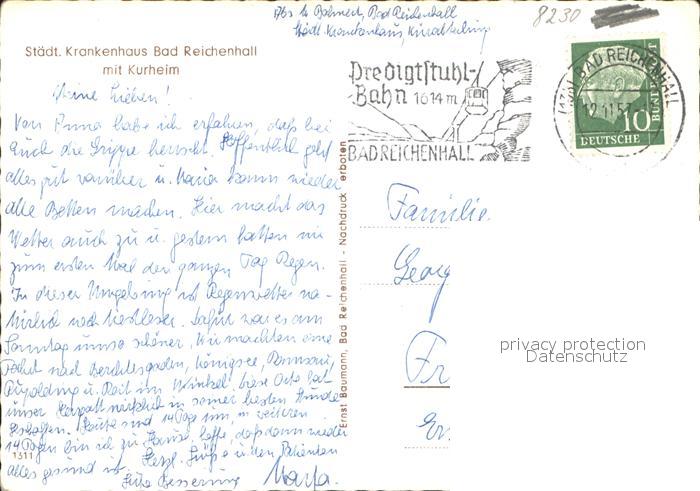 Abs. M. Bahmert, Bad Reichenhall
Städt. Krankenhaus, Kurabteilung
8230
Städt. Krankenhaus Bad Reichenhall
mit Kurheim
Predigtstuhl-
Bahn 1614 m
BAD REICHENHALL
BAD REICHENHALL
12.11.57
10
DEUTSCHE
BUNDESPOST
Meine Lieben!
Von Anna habe ich erfahren, daß bei
Euch die Grippe herrscht. Hoffentlich geht
alles gut vorüber u. Maria kann wieder
alle Betten machen. Hier macht das
Wetter auch zu u. gestern hatten wir
zum ersten Mal den ganzen Tag Regen.
In dieser Umgebung ist Regenwetter na-
türlich noch trostloser. Dafür war es am
Sonntag umso schöner. Wir machten eine
Fahrt nach Berchtesgaden, Königsee, Ramsau,
Ruhpolding u. Reit im Winkel. Diese Orte hat
unser Herrgott wirklich in seiner besten Stunde
geschaffen. Heute sind 14 Tage um, in weiteren
14 Tagen bin ich zu Hause, hoffe, daß dann wieder
alles gesund ist. Herzl. Grüße u. den Patienten
Gute Besserung
1311
Ernst Baumann, Bad Reichenhall - Nachdruck verboten
Familie
Georg
Fr
privacy protection
Datenschutz